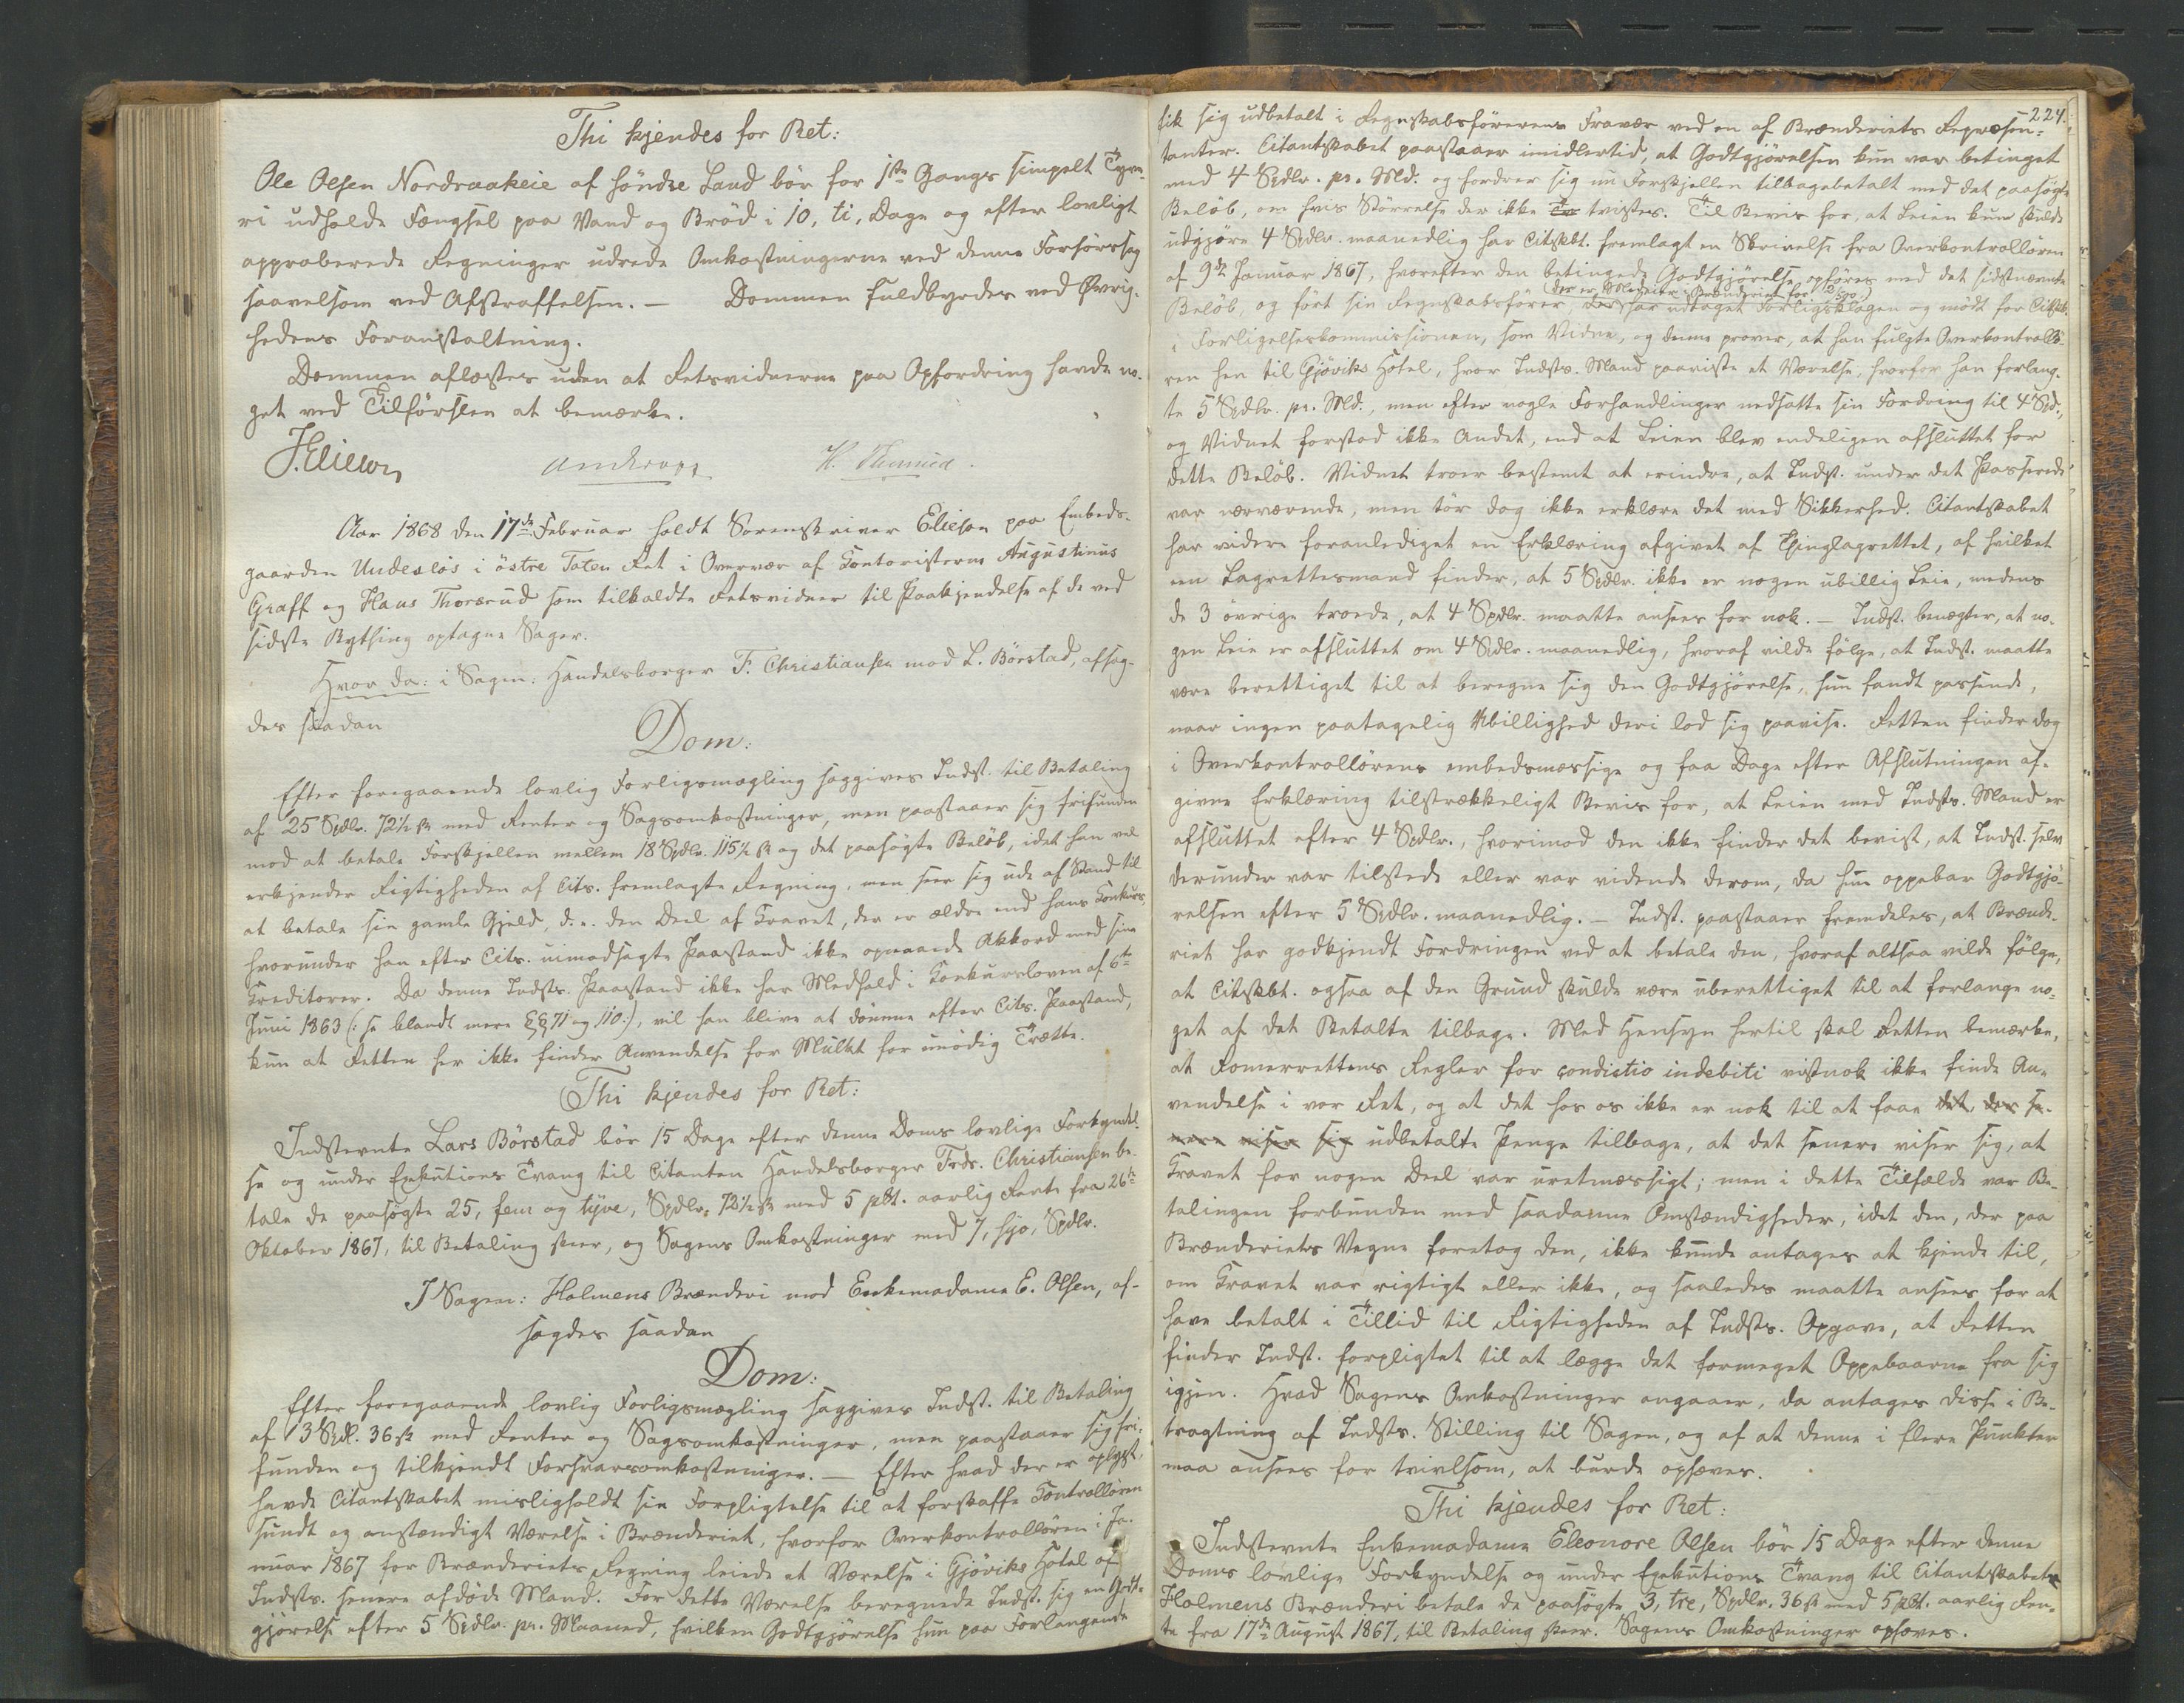 Thi kjendes for Ret:
Ole Olsen Nordraakeie af söndre Land bör for 1ste Gangs simpelt Tyve-
ri udholde Fængsel paa Vand og Bröd i 10, ti, Dage og efter lovligt
approberede Regninger udrede Omkostningerne ved denne Forhörssag
saavelsom ved Afstraffelsen. — Dommen fuldbyrdes ved Övrig-
hedens Foranstaltning.
Dommen aflæstes uden at Retsvidnerne paa Opfordring havde no-
get ved Tilförslen at bemærke.
J. Elieson
Aar 1868 den 17de Februar holdt Sorenskriver Elieson paa Embeds-
gaarden Undeslös i östre Toten Ret i Overvær af Kontoristerne Augustinus
Graff og Hans Thorsrud som tilkaldte Retsvidner til Paakjendelse af de ved
sidste Bything optagne Sager.
Hvor da: i Sagen: Handelsborger F. Christiansen mod L. Börstad, afsag-
des saadan
Dom:
Efter foregaaende lovlig Forligsmægling saggives Indst. til Betaling
af 25 Spdlr. 72½ ß med Renter og Sagsomkostninger, men paastaaer sig frifunden
mod at betale Forskjellen mellem 18 Spdlr. 115½ ß og det paasögte Belöb, idet han vel
erkjender Rigtigheden af Cits. fremlagte Regning, men seer sig ude af Stand til
at betale sin gamle Gjeld, d. e. den Deel af Kravet, der er ældre end hans Konkurs,
hvorunder han efter Cits. uimodsagte Paastand ikke opnaaede Akkord med sine
Kreditorer. Da denne Indsts. Paastand ikke har Medhold i Konkursloven af 6te
Juni 1863 (: se blandt mere §§ 71 og 110:), vil han blive at dömme efter Cits. Paastand,
kun at Retten her ikke finder Anvendelse for Mulkt for unödig Trætte.
Thi kjendes for Ret:
Indstevnte Lars Börstad bör 15 Dage efter denne Doms lovlige Forkyndel-
se og under Exekutions Tvang til Citanten Handelsborger Frds. Christiansen be-
tale de paasögte 25, fem og tyve, Spdlr. 72½ ß med 5 pCt. aarlig Rente fra 26de
Oktober 1867, til Betaling skeer, og Sagens Omkostninger med 7, syv, Spdlr.
I Sagen: Holmens Brænderi mod Enkemadame E. Olsen, af-
sagdes saadan
Dom:
Efter foregaaende lovlig Forligsmægling saggives Indst. til Betaling
af 3 Spdl. 36 ß med Renter og Sagsomkostninger, men paastaaer sig fri-
funden og tilkjendt Forsvarsomkostninger. — Efter hvad der er oplyst,
havde Citantskabet misligholdt sin Forpligtelse til at forskaffe Kontrollören
sundt og anstændigt Værelse i Brænderiet, hvorfor Overkontrollören i Ja-
nuar 1867 for Brænderiets Regning leiede et Værelse i Gjöviks Hotel af
Indsts. senere afdöde Mand. For dette Værelse beregnede Indst. sig en Godt-
gjörelse efter 5 Spdlr. pr. Maaned, hvilken Godtgjörelse hun paa Forlangende
224.
fik sig udbetalt i Regnskabsförerens Fravær ved en af Brænderiets Repræsen-
tanter. Citantskabet paastaaer imidlertid, at Godtgjörelsen kun var betinget
med 4 Spdlr. pr. Md. og fordrer sig nu Forskjellen tilbagebetalt med det paasögte
Belöb, om hvis Störrelse der ikke tvistes. Til Bevis for, at Leien kun skulde
udgjöre 4 Spdlr. maanedlig har Citskbt. fremlagt en Skrivelse fra Overkontrollören
af 9de Januar 1867, hvorefter den betingede Godtgjörelse opföres med det sidstnævnte
(der er Medeier i Brænderiet for
Belöb, og fört sin Regnskabsförer, der har udtaget Forligsklagen og mödt for Citskb.
i Forligelseskommissionen, som Vidne, og denne prover, at han fulgte Overkontrollö-
ren hen til Gjöviks Hotel, hvor Indsts. Mand paaviste et Værelse, hvorfor han forlang-
te 5 Spdlr. pr. Md., men efter nogle Forhandlinger nedsatte sin Fordring til 4 Spd.,
og Vidnet forstod ikke Andet, end at Leien blev endeligen afsluttet for
dette Belöb. Vidnet troer bestemt at erindre, at Indst. under det Passerede
var nærværende, men tör dog ikke erklære det med Sikkerhed. Citantskabet
har videre foranlediget en Erklæring afgivet af Thinglagrettet, af hvilket
een Lagrettesmand finder, at 5 Spdlr. ikke er nogen ubillig Leie, medens
de 3 övrige troede, at 4 Spdlr. maatte ansees for nok. — Indst. benægter, at no-
gen Leie er afsluttet om 4 Spdlr. maanedlig, hvoraf vilde fölge, at Indst. maatte
være berettiget til at beregne sig den Godtgjörelse, hun fandt passende,
naar ingen paatagelig Ubillighed deri lod sig paavise. Retten finder dog
i Overkontrollörens embedsmæssige og faa Dage efter Afslutningen af-
givne Erklæring tilstrækkeligt Bevis for, at Leien med Indsts. Mand er
afsluttet efter 4 Spdlr., hvorimod den ikke finder det bevist, at Indst. selv
derunder var tilstede eller var vidende derom, da hun oppebar Godtgjö-
relsen efter 5 Spdlr. maanedlig. — Indst. paastaaer fremdeles, at Brænde-
riet har godkjendt Fordringen ved at betale den, hvoraf altsaa vilde fölge,
at Citskbt. ogsaa af den Grund skulde være uberettiget til at forlange no-
get af det Betalte tilbage. Med Hensyn hertil skal Retten bemærke,
at Romerrettens Regler for condictio indebiti vistnok ikke finde An-
vendelse i vor Ret, og at det hos os ikke er nok til at faae det, der se-
nere viser sig udbetalte Penge tilbage, at det senere viser sig, at
Kravet for nogen Deel var uretmæssigt; men i dette Tilfælde var Be-
talingen forbunden med saadanne Omstændigheder, idet den, der paa
Brænderiets Vegne foretog den, ikke kunde antages at kjende til,
om Kravet var rigtigt eller ikke, og saaledes maatte ansees for at
have betalt i Tillid til Rigtigheden af Indsts. Opgave, at Retten
finder Indst. forpligtet til at lægge det formeget Oppebaarne fra sig
igjen. Hvad Sagens Omkostninger angaaer, da antages disse i Be-
tragtning af Indsts. Stilling til Sagen, og af at denne i flere Punkter
maa ansees for tvivlsom, at burde ophæves.
Thi kjendes for Ret:
Indstevnte Enkemadame Eleonore Olsen bör 15 Dage efter denne
Doms lovlige Forkyndelse og under Exekutions Tvang til Citantskabet
Holmens Brænderi betale de paasögte 3, tre, Spdlr. 36 ß med 5 pCt. aarlig Ren-
te fra 17de August 1867, til Betaling skeer. Sagens Omkostninger ophæves.